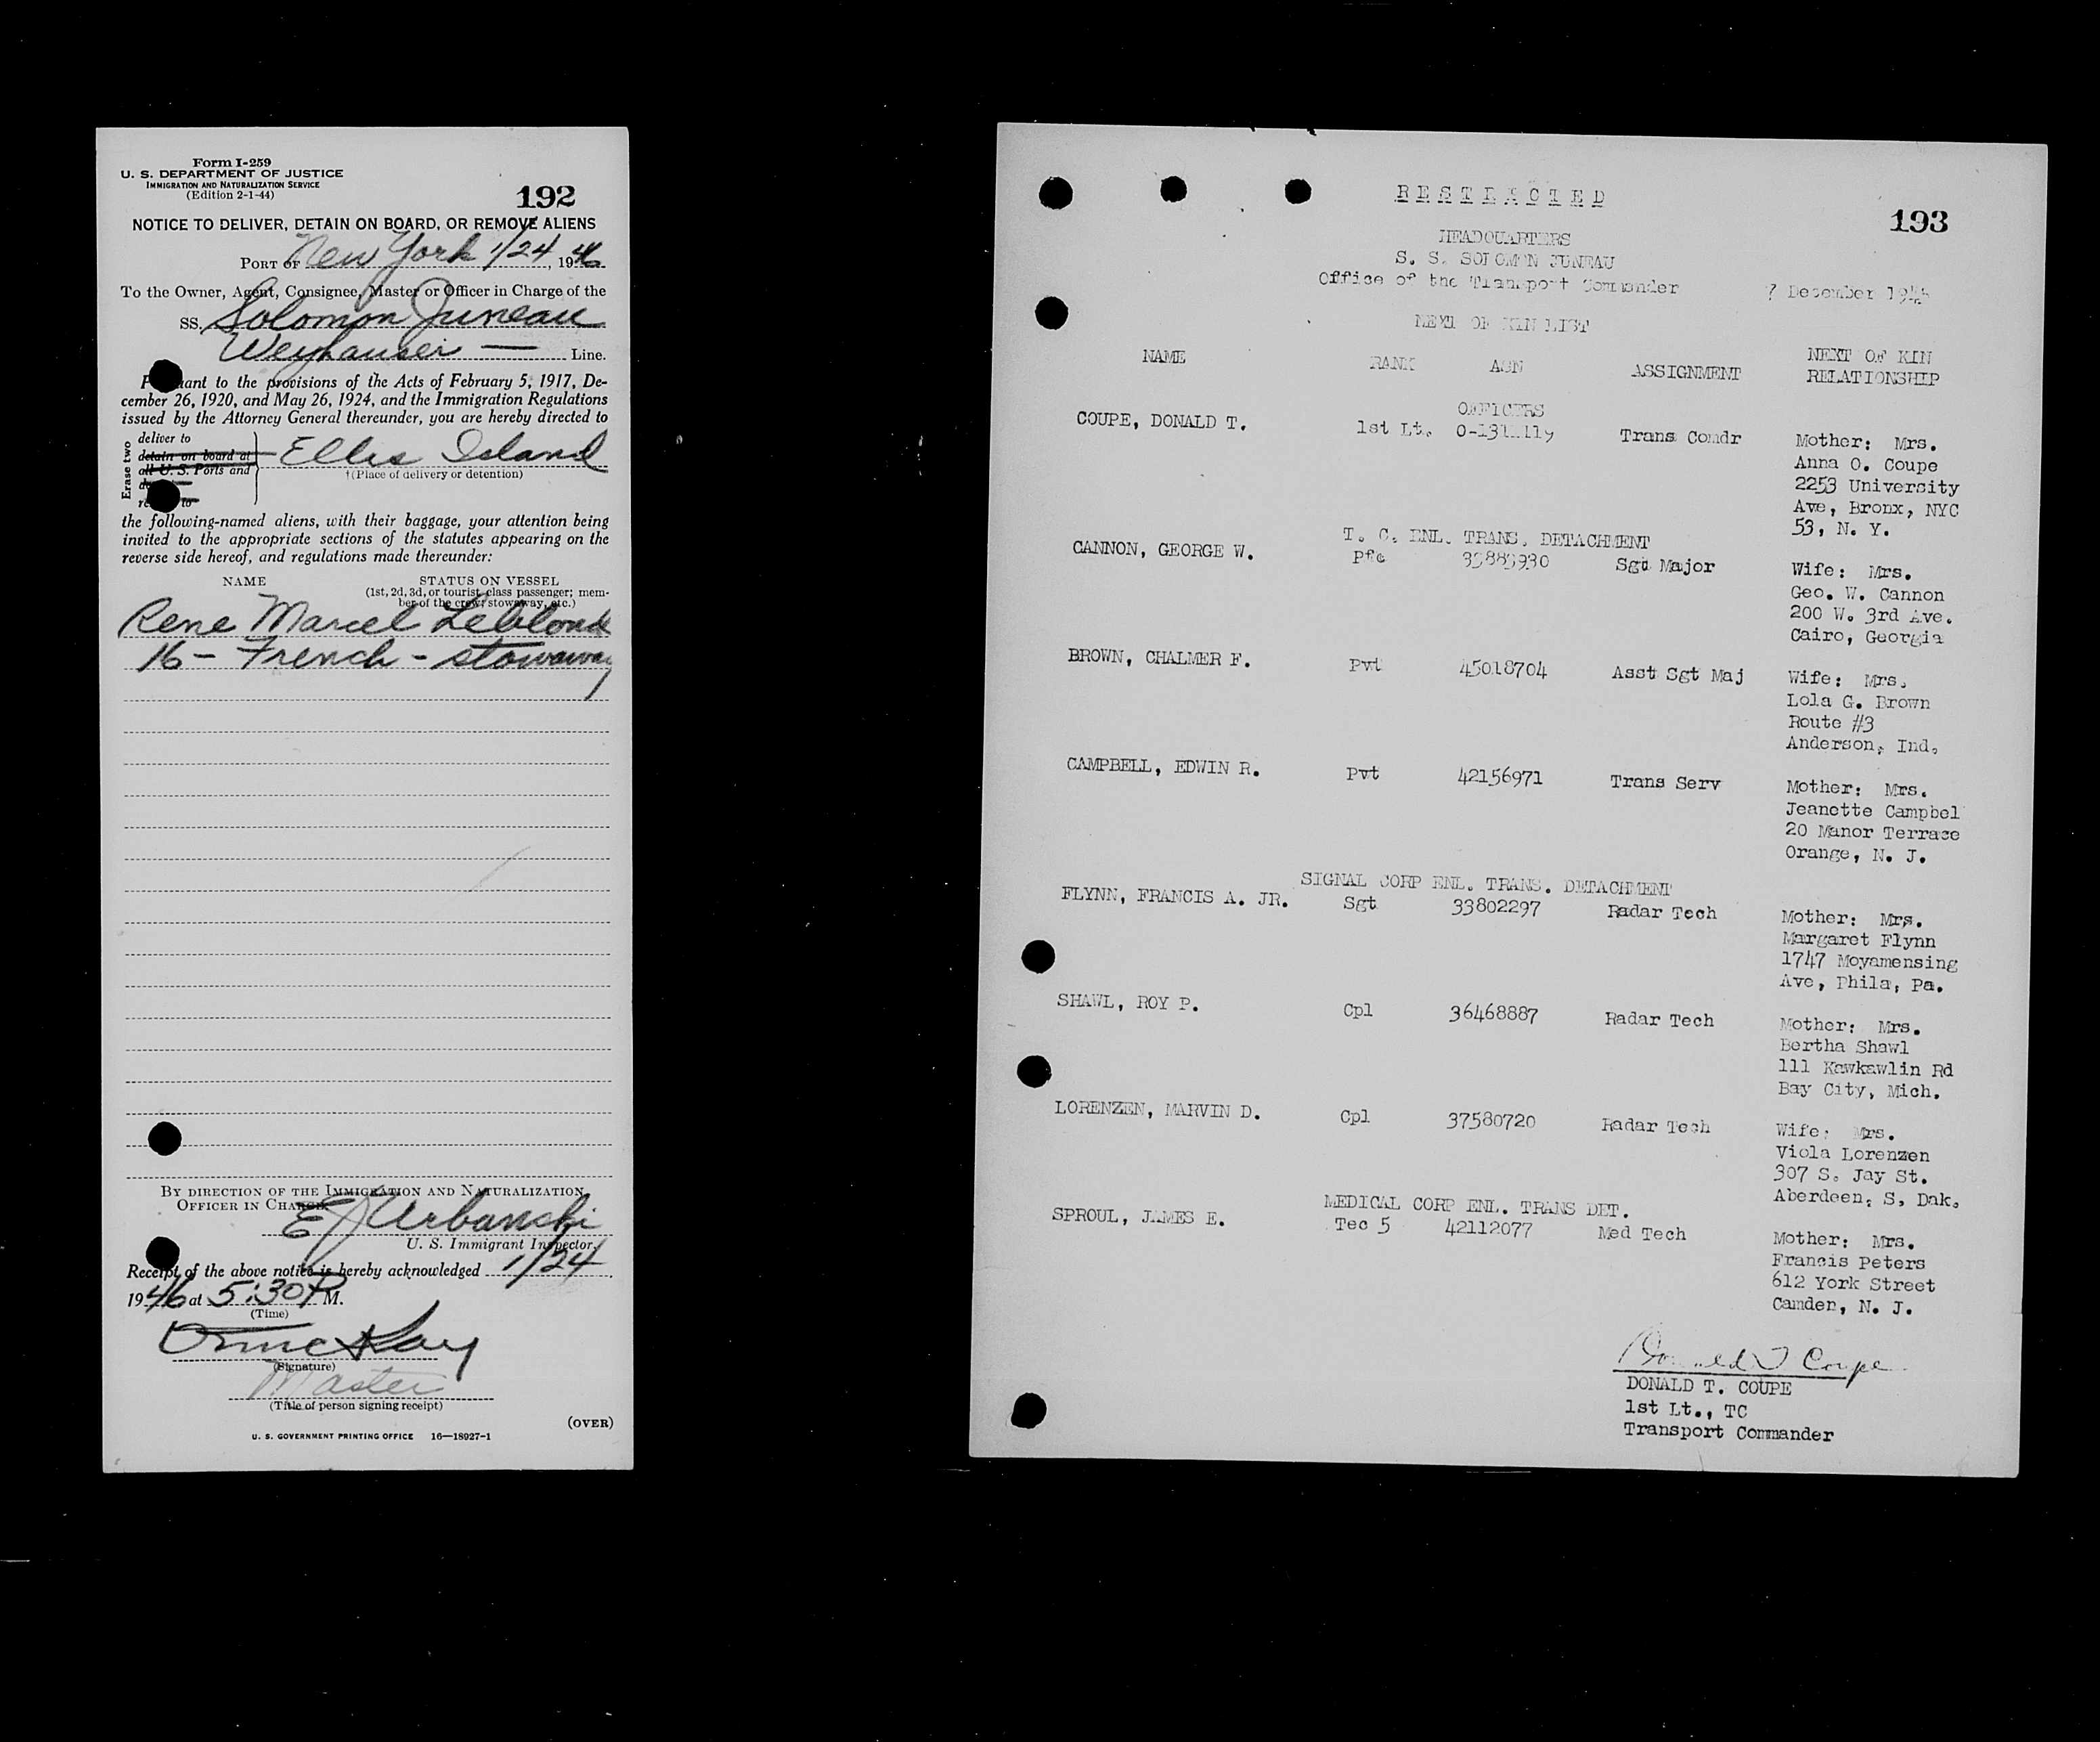 Form I-259
U. S. DEPARTMENT OF JUSTICE
IMMIGRATION AND NATURALIZATION SERVICE
(Edition 2-1-44)
192
NOTICE TO DELIVER, DETAIN ON BOARD, OR REMOVE ALIENS
PORT OF New York 1/24, 1946
To the Owner, Agent, Consignee, Master or Officer in Charge of the
SS. Solomon Juneau
Weyhauser — Line.
to the provisions of the Acts of February 5, 1917, De-
cember 26, 1920, and May 26, 1924, and the Immigration Regulations
issued by the Attorney General thereunder, you are hereby directed to
Erase two
deliver to
detain on board at
all U. S. Ports and
to
Ellis Island
†(Place of delivery or detention)
the following-named aliens, with their baggage, your attention being
invited to the appropriate sections of the statutes appearing on the
reverse side hereof, and regulations made thereunder:
NAME STATUS ON VESSEL
(1st, 2d, 3d, or tourist class passenger; mem-
ber of the crew, stowaway, etc.)
Rene Marcel Leblond
16 - French - stowaway
BY DIRECTION OF THE IMMIGRATION AND NATURALIZATION
OFFICER IN CHARGE
E J Urbanski
U. S. Immigrant Inspector.
Receipt of the above notice is hereby acknowledged 1/24,
1946 at 5:30 P M.
(Time)
(Signature)
Master
(Title of person signing receipt)
(OVER)
U. S. GOVERNMENT PRINTING OFFICE 16—18927-1
RESTRICTED
193
HEADQUARTERS
S. S. SOLOMON JUNEAU
Office of the Transport Commander 7 December
NEXT OF KIN LIST
NAME RANK ASN ASSIGNMENT NEXT OF KIN
RELATIONSHIP
OFFICERS
COUPE, DONALD T. 1st Lt. Trans Comdr Mother: Mrs.
Anna O. Coupe
2253 University
Ave, Bronx, NYC
53, N. Y.
T. C. ENL. TRANS. DETACHMENT
CANNON, GEORGE W. Pfc Sgt Major Wife: Mrs.
Geo. W. Cannon
200 W. 3rd Ave.
Cairo, Georgia
BROWN, CHALMER F. Pvt 45018704 Asst Sgt Maj Wife: Mrs.
Lola G. Brown
Route #3
Anderson, Ind.
CAMPBELL, EDWIN R. Pvt 42156971 Trans Serv Mother: Mrs.
Jeanette Campbel
20 Manor Terrace
Orange, N. J.
SIGNAL CORP ENL. TRANS. DETACHMENT
FLYNN, FRANCIS A. JR. Sgt 33802297 Radar Tech Mother: Mrs.
Margaret Flynn
1747 Moyamensing
Ave, Phila, Pa.
SHAWL, ROY P. Cpl 36468887 Radar Tech Mother: Mrs.
Bertha Shawl
111 Kawkawlin Rd
Bay City, Mich.
LORENZEN, MARVIN D. Cpl 37580720 Radar Tech Wife: Mrs.
Viola Lorenzen
307 S. Jay St.
Aberdeen, S. Dak.
MEDICAL CORP ENL. TRANS DET.
SPROUL, JAMES E. Tec 5 42112077 Med Tech Mother: Mrs.
Francis Peters
612 York Street
Camden, N. J.
Donald T Coupe
DONALD T. COUPE
1st Lt., TC
Transport Commander